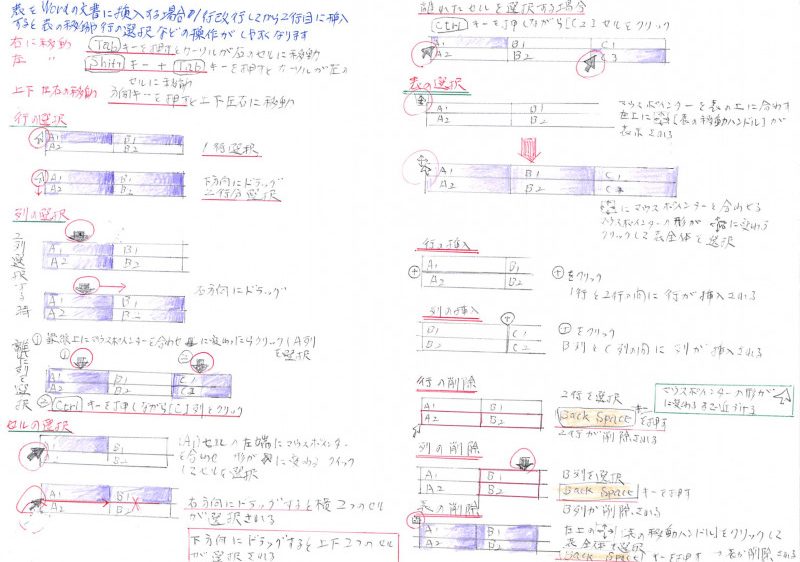 表をWordの文書に挿入する場合 1行改行してから2行目に挿入
すると表の移動 行の選択などの操作がしやすくなります
右に移動 Tabキーを押すとカーソルが右のセルに移動
左 〃 Shiftキー + Tabキーを押すとカーソルが左の
セルに移動
上下左右の移動 方向キーを押すと上下左右に移動
行の選択
A1 B1
A2 B2
1行選択
A1 B1
A2 B2
下方向にドラッグ
二行分選択
列の選択
A1 B1
A2 B2
A1 B1
A2 B2
右方向にドラッグ
① にマウスポインターを合わせ に変わったらクリック(A列
を選択
① ②
A1 B1 C1
A2 B2
離れた列を選択
② Ctrlキーを押しながら[C]列をクリック
セルの選択
A1 B1
A2 B2
(A1)セルの左端にマウスポインター
を合わせ 形が に変わる クイック
してセルを選択
A1 B1
A2 B2
右方向にドラッグすると横2つのセル
が選択される
下方向にドラッグすると上下2つのセル
が選択される
離れたセルを選択する場合
Ctrlキーを押しながら[C2]セルをクリック
A1 B1 C1
A2 B2 C3
表の選択
A1 B1
A2 B2
マウスポインターを表の上に合わす
左上に [表の移動ハンドル]が
表示される
A1 B1 C1
A2 B2
にマウスポインターを合わせる
マウスポインターの形が に変わる
クリックして表全体を選択
行の挿入
A1 B1
A2 B2
⊕をクリック
1行と2行の間に行が挿入される
列の挿入
B1 C1
B2 C2
をクリック
B列とC列の間に列が挿入される
行の削除
A1 B1
A2 B2
2行を選択
Back Spaceキーを押す
2行が削除される
マウスポインターの形が
に変わる
列の削除
A1 B1
A2 B2
B列を選択
Back Spaceキーを押す
B列が削除される
表の削除
A1 B1
A2 B2
左上の [表の移動ハンドル]をクリックして
表全体を選択
Back Spaceキーを押す 表が削除される